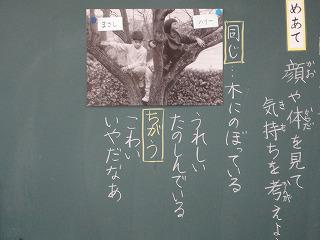 めあて
顔や体を見て
かお からだ
気持ちを考えよう
きも かんが
同じ…木にのぼっている
うれしい
たのしんでいる
ちがう
こわい
いやだなあ
ハリー
まさし